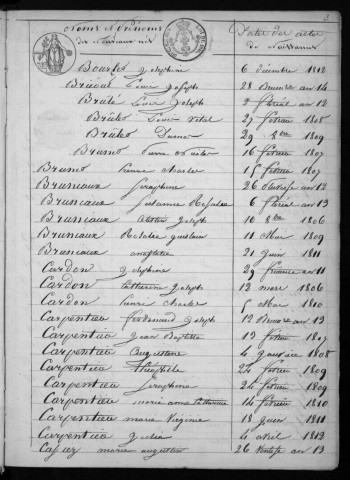 3
Noms et Prénoms Dates des actes
des nouveaux nés de Naissances
Bourlez Josephine 6 décembre 1812
Joseph 28 Brumre an 14
Bruté Louis Joseph 2 floréal an 12
Bruté Louis Vital 27 février 1808
29 8bre 1809
Bruno 16 février 1807
Bruno Pierre Charles 15 février 1807
Bruniaux Seraphine 26 an 12
Bruniaux Julianne Rosalie 6 floréal an 13
Bruniaux Joseph 10 8bre 1806
Bruniaux Rosalie Guislain 11 mai 1809
Bruniaux 21 juin 1811
Cardon Josephine 29 frimaire an 11
Cardon Catherine Joseph 12 mars 1806
Cardon Pierre Charles 5 mai 1810
Carpentier Ferdinand Joseph 12 Brumre an 13
Carpentier Jean Baptiste 13 février 1807
Carpentier Augustine 4 janvier 1808
Carpentier Théophile 24 février 1809
Carpentier Seraphine 24 février 1809
Carpentier marie anne Catherine 14 février 1810
Carpentier marie Virginie 18 juin 1811
Carpentier Julie 4 avril 1812
marie augustine 26 Ventose an 13